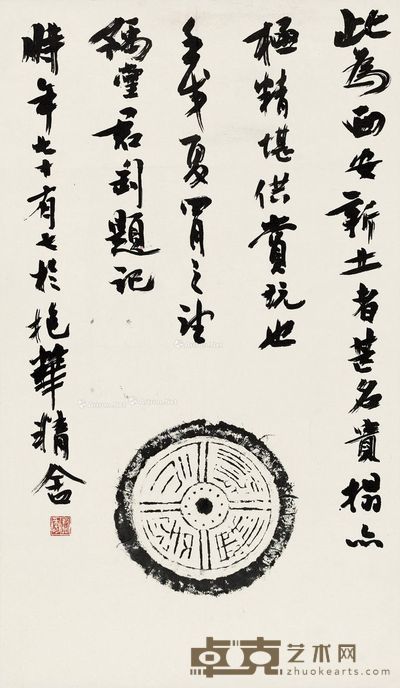 此為西安新出者甚名貴搨亦
極精堪供賞玩也
壬戌夏四月之望
豫堂君匋題記
時年七十有七於抱華精舍
卓克艺术网
zhuokearts.com